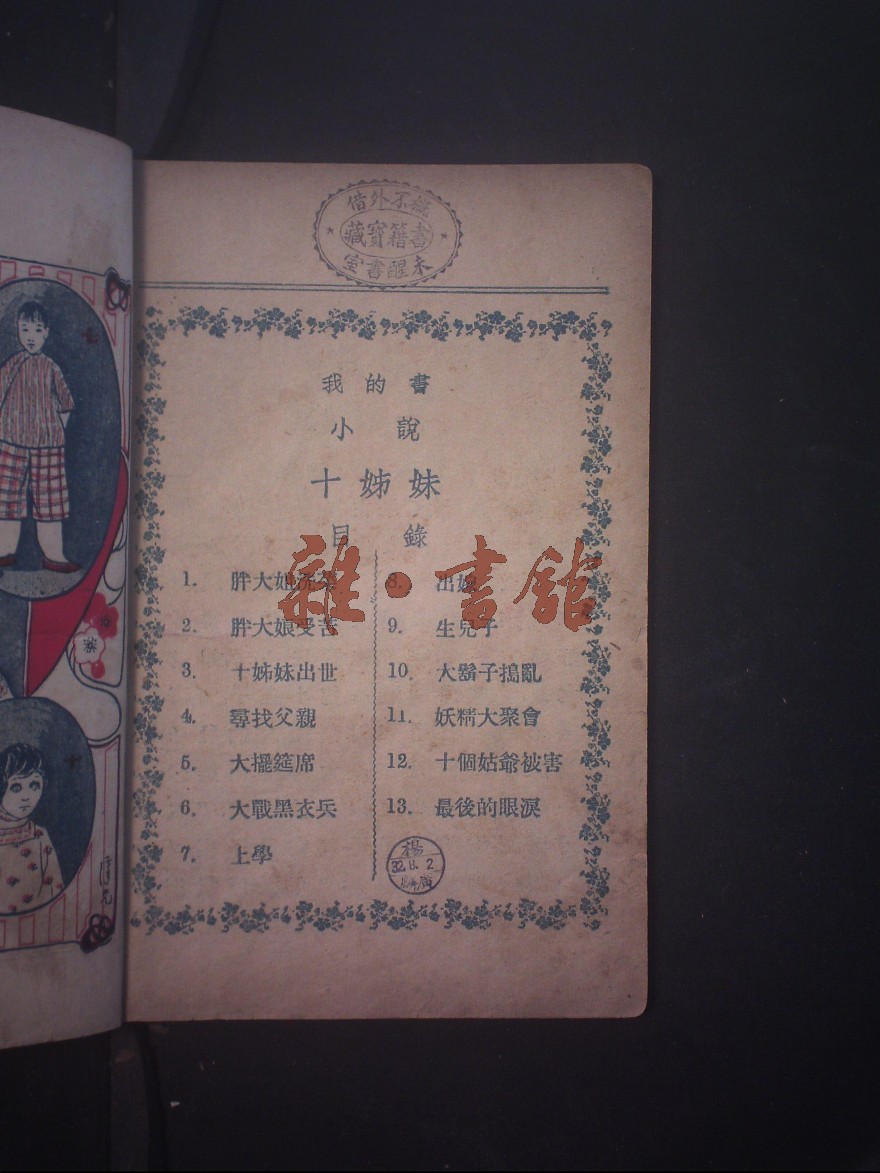 概不外借
書籍寶藏
未醒書室
我的書
小說
十姊妹
目錄
1. 胖大姐洗菜
2. 胖大娘受苦
3. 十姊妹出世
4. 尋找父親
5. 大擺筵席
6. 大戰黑衣兵
7. 上學
8. 出嫁
9. 生兒子
10. 大鬍子搗亂
11. 妖精大聚會
12. 十個姑爺被害
13. 最後的眼淚
雜·書館
楊
32.8.2